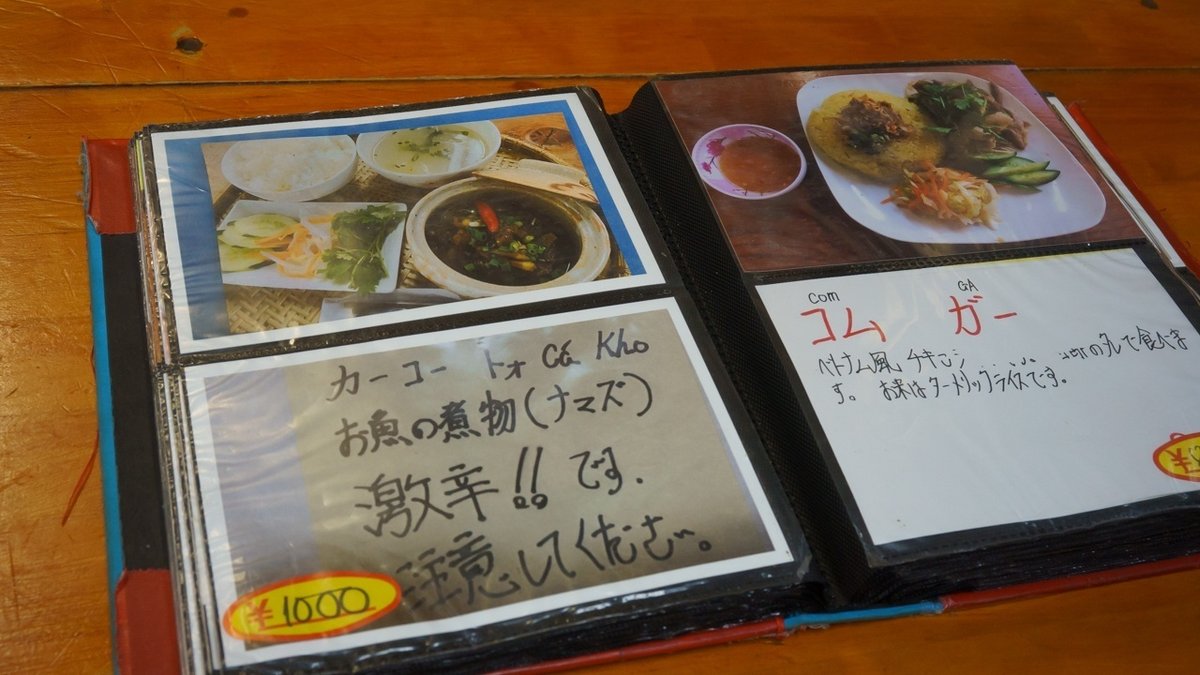 カーコー トォ Cá Kho
お魚の煮物(ナマズ)
激辛!!です.
注意してください。
¥1000
Com GA
コム ガー
ベトナム風 チキン の丸で食べま
す。 お米はターメリックライスです。
¥